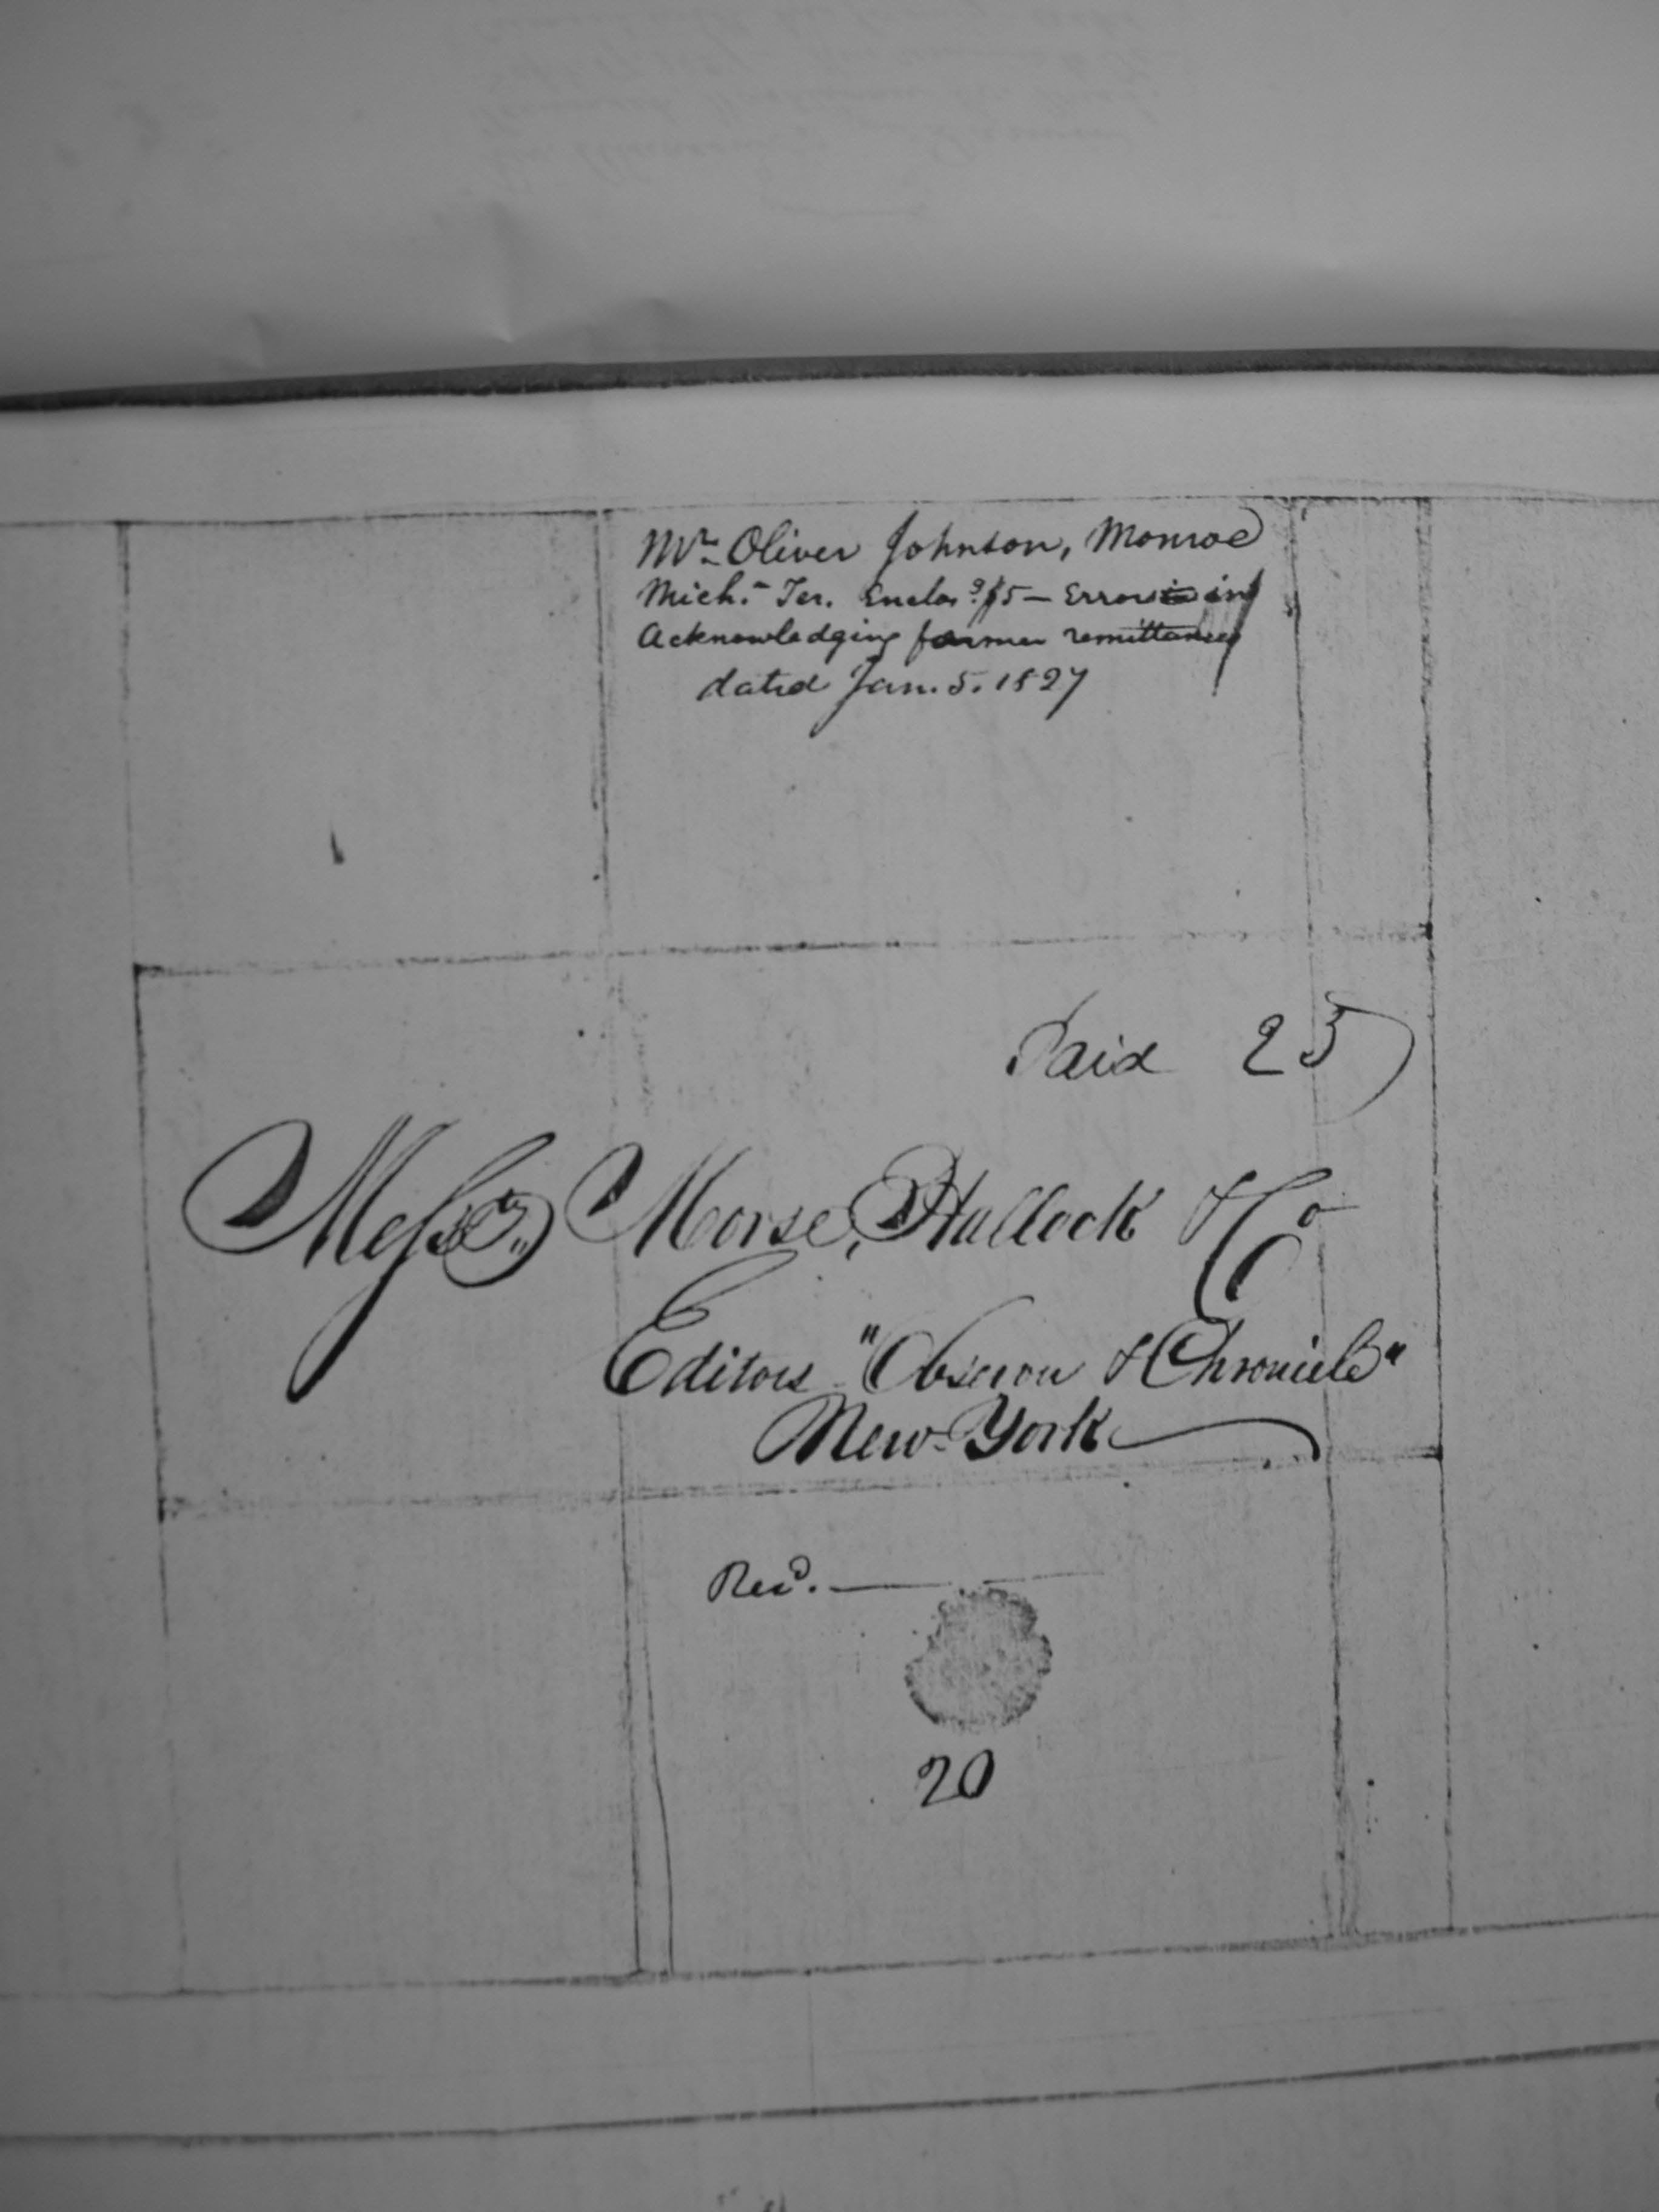 Mr. Oliver Johnson, Monroe
Mich. Ter. Enclos.g $5 – Error in
Acknowledging former remittance
dated Jan. 5. 1827
Paid 25
Messrs. Morse, Hallock & Co
Editors "Observer & Chronicle"
New-York
Recd.
20